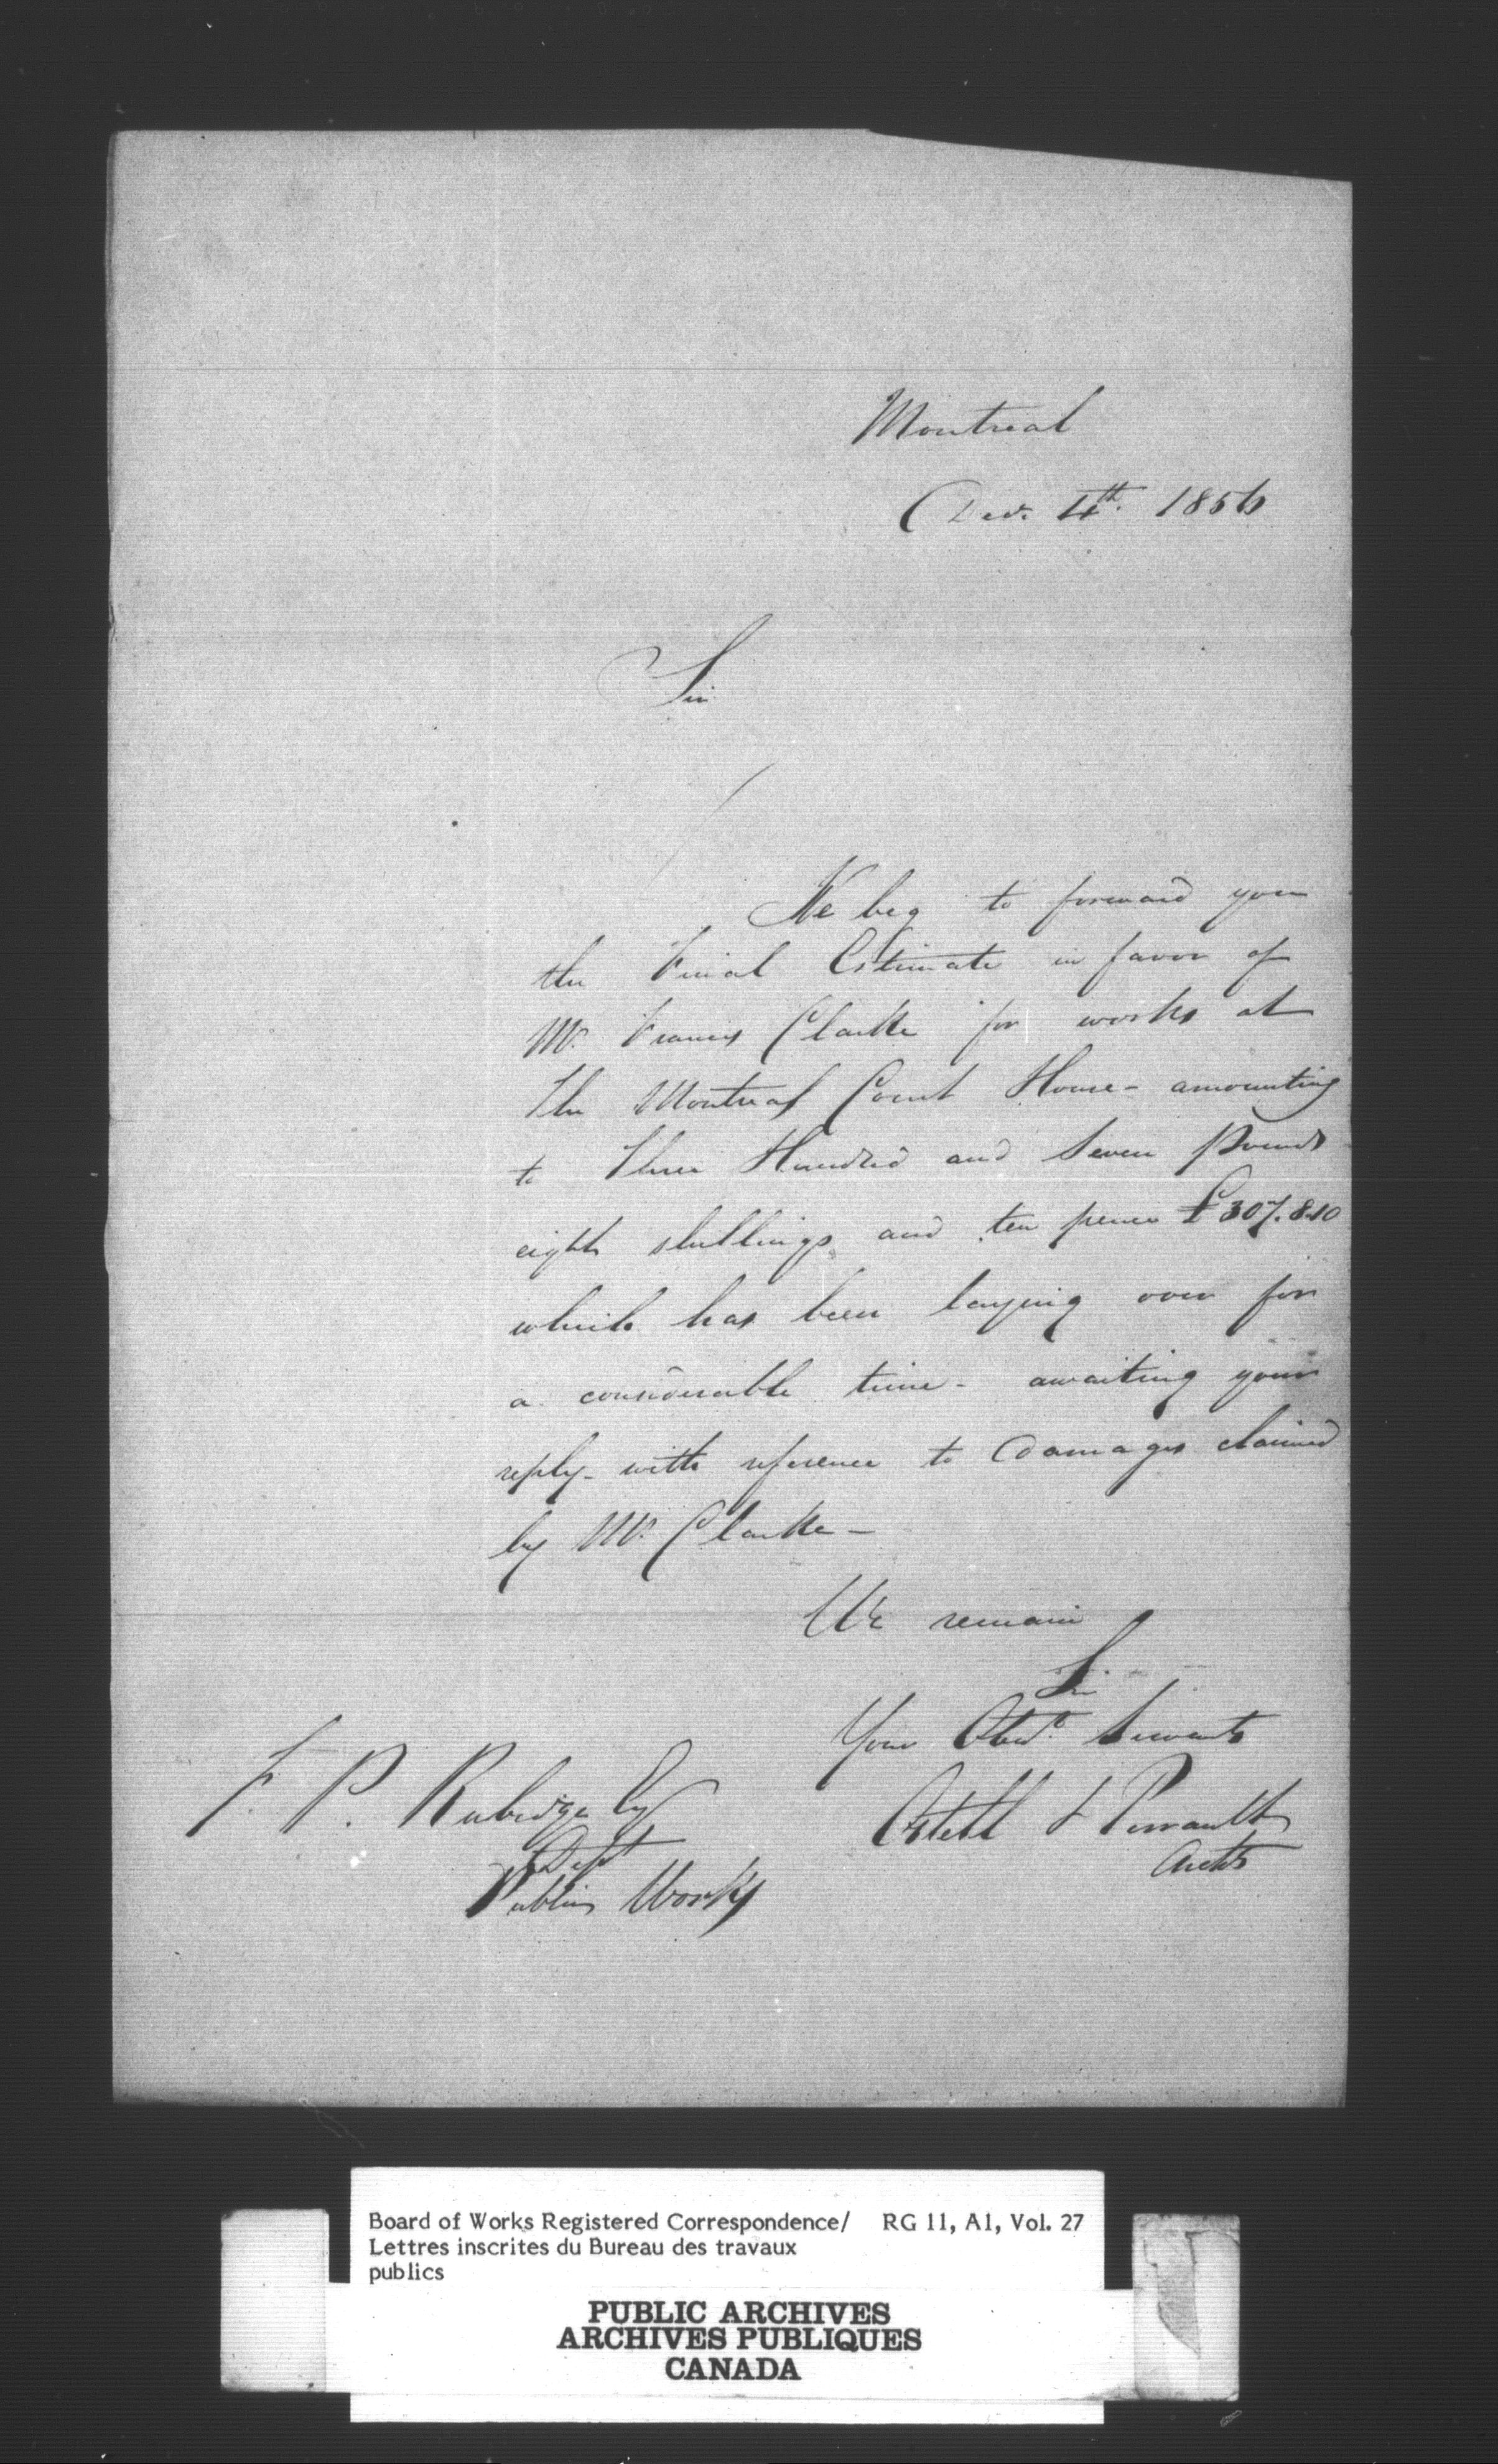 Montreal
Dec. 4th. 1856
Sir
We beg to forward you
the Final Estimate in favor of
Mr. Francis Clarke for works at
The Montreal Court House - amounting
to Three Hundred and Seven Pounds
eight shillings and ten pence £307.8.10
which has been laying over for
a considerable time - awaiting your
reply - with reference to Damages claimed
by Mr. Clarke -
We remain
Sir
Your Obedt. Servants
Ostell & Perrault
Archts
F. P. Rubidge Esq
Dept
Public Works
Board of Works Registered Correspondence/ RG 11, A1, Vol. 27
Lettres inscrites du Bureau des travaux
publics
PUBLIC ARCHIVES
ARCHIVES PUBLIQUES
CANADA